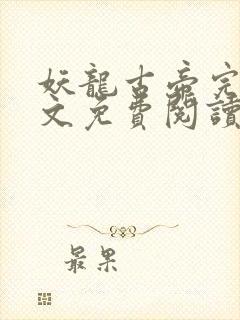 妖龍古帝完
文免費閱讀
最果